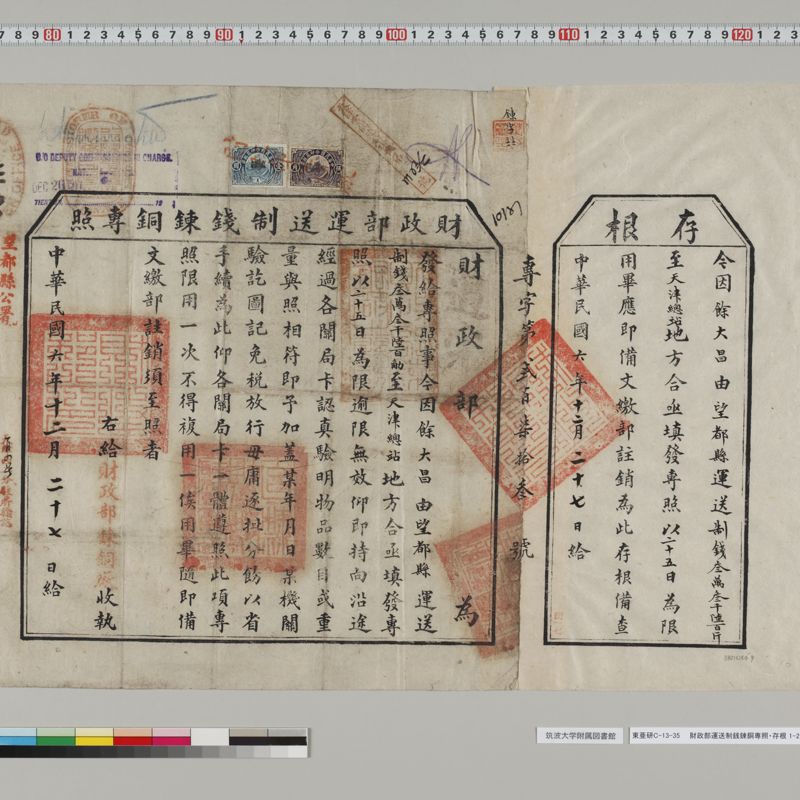 存根
令因餘大昌由望都縣運送制錢叁萬叁千陸百斤
至天津總站地方合亟填發專照以二十五日為限
用畢應即備文繳部註銷為此存根備查
中華民國六年十二月二十七日給
專字第弍百柒拾叁號
財政部運送制錢鍊銅專照
財政部為
發給專照事今因餘大昌由望都縣運送
制錢叁萬叁千陸百觔至天津總站地方合亟填發專
照以二十五日為限逾限無效仰即持向沿途
經過各關局卡認真驗明物品數目或重
量與照相符即予加蓋某年月日某機關
驗訖圖記免稅放行毋庸逐批分飭以省
手續為此仰各關局卡一體遵照此項專
照限用一次不得複用一俟用畢隨即備
文繳部註銷須至照者
右給財政部鍊銅廠收執
中華民國六年十二月二十七日給
望都縣公署
筑波大学附属図書館
東亜研C-13-35 財政部運送制銭錬銅専照・存根 1-2